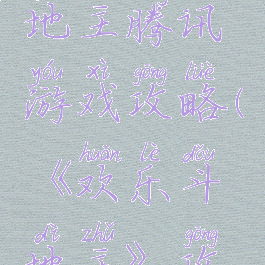 地主腾讯
yóu xì gōng lüè
游戏攻略(
huān lè dòu
《欢乐斗
dì zhǔ gōng
地主》攻